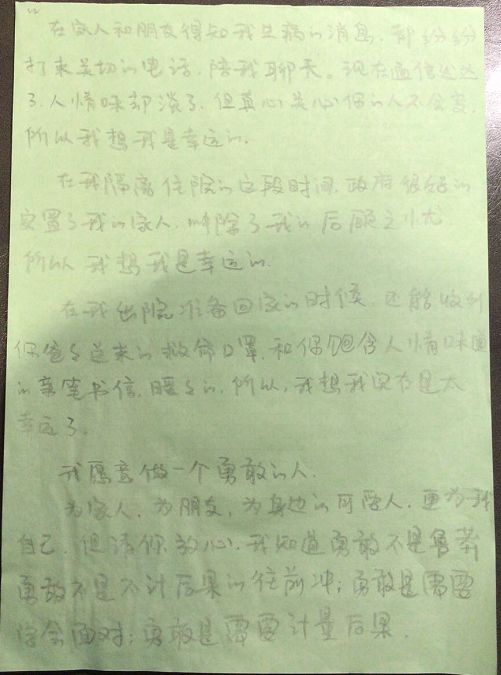 在家人和朋友得知我生病的消息, 都纷纷
打来关切的电话, 陪我聊天。现在通信发达
了, 人情味却淡了, 但真心关心你的人不会变,
所以我想我是幸运的.
在我隔离住院的这段时间, 政府很好的
安置了我的家人, 解除了我的后顾之忧.
所以我想我是幸运的.
在我出院准备回家的时候, 还能收到
你爸爸送来的救命口罩, 和你饱含人情味道
的亲笔书信, 暖暖的, 所以, 我想我实在是太
幸运了.
我愿意做一个勇敢的人.
为家人, 为朋友, 为身边的可爱人, 更为我
自己, 但请你放心, 我知道勇敢不是鲁莽
勇敢不是不计后果的往前冲; 勇敢是需要
学会面对; 勇敢是需要计量后果.